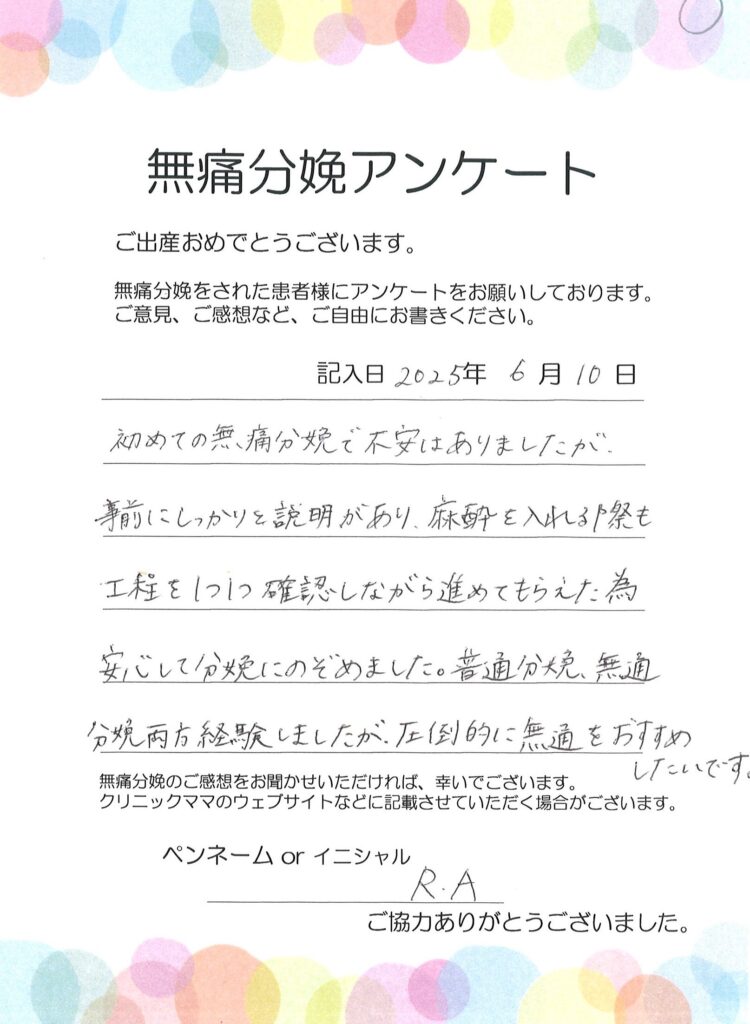 無痛分娩アンケート
ご出産おめでとうございます。
無痛分娩をされた患者様にアンケートをお願いしております。
ご意見、ご感想など、ご自由にお書きください。
記入日 2025年 6月 10日
初めての無痛分娩で不安はありましたが、
事前にしっかりと説明があり、麻酔を入れる際も
工程を1つ1つ確認しながら進めてもらえた為
安心して分娩にのぞめました。普通分娩、無通
分娩両方経験しましたが、圧倒的に無通をおすすめ
したいです。
無痛分娩のご感想をお聞かせいただければ、幸いでございます。
クリニックママのウェブサイトなどに記載させていただく場合がございます。
ペンネーム or イニシャル
R.A
ご協力ありがとうございました。